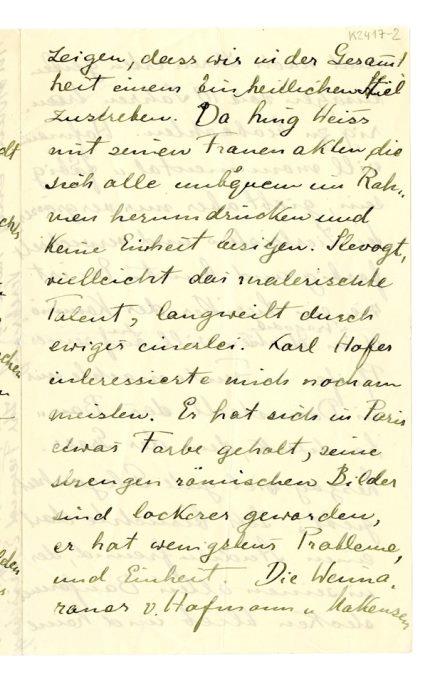 K2417-2
zeigen, dass wir in der Gesamt
heit einem einheitlichen Stiel
zustreben. Da hing Weiss
mit seinen Frauenakten, die
sich alle unbequem im Rah„
men herumdrücken und
keine Einheit besitzen. Slevogt,
vielleicht das malerischte
Talent, langweilt durch
ewiges einerlei. Karl Hofer
interessierte mich noch am
meisten. Er hat sich in Paris
etwas Farbe geholt, seine
strengen römischen Bilder
sind lockerer geworden,
er hat wenigstens Probleme,
und Einheit. Die Weima„
raner v. Hofmann u Makensen